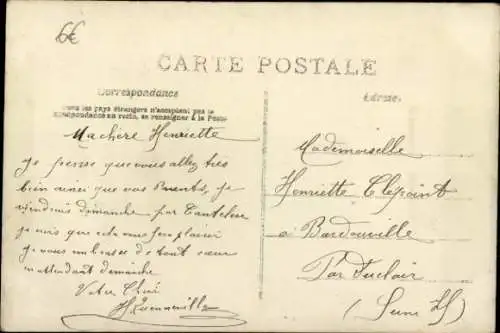 6€
CARTE POSTALE
Correspondance
Tous les pays étrangers n'acceptent pas la
correspondance au recto, se renseigner à la Poste
Adresse
Ma chère Henriette
Je pense que vous allez très
bien ainsi que vos Parents, je
viendrais dimanche par
je suis que cela vous fera plaisir
Je vous embrasse de tout cœur
en attendant dimanche
Votre
Mademoiselle
Henriette Clépoint
à Bardouville
Par Duclair
(Seine If)